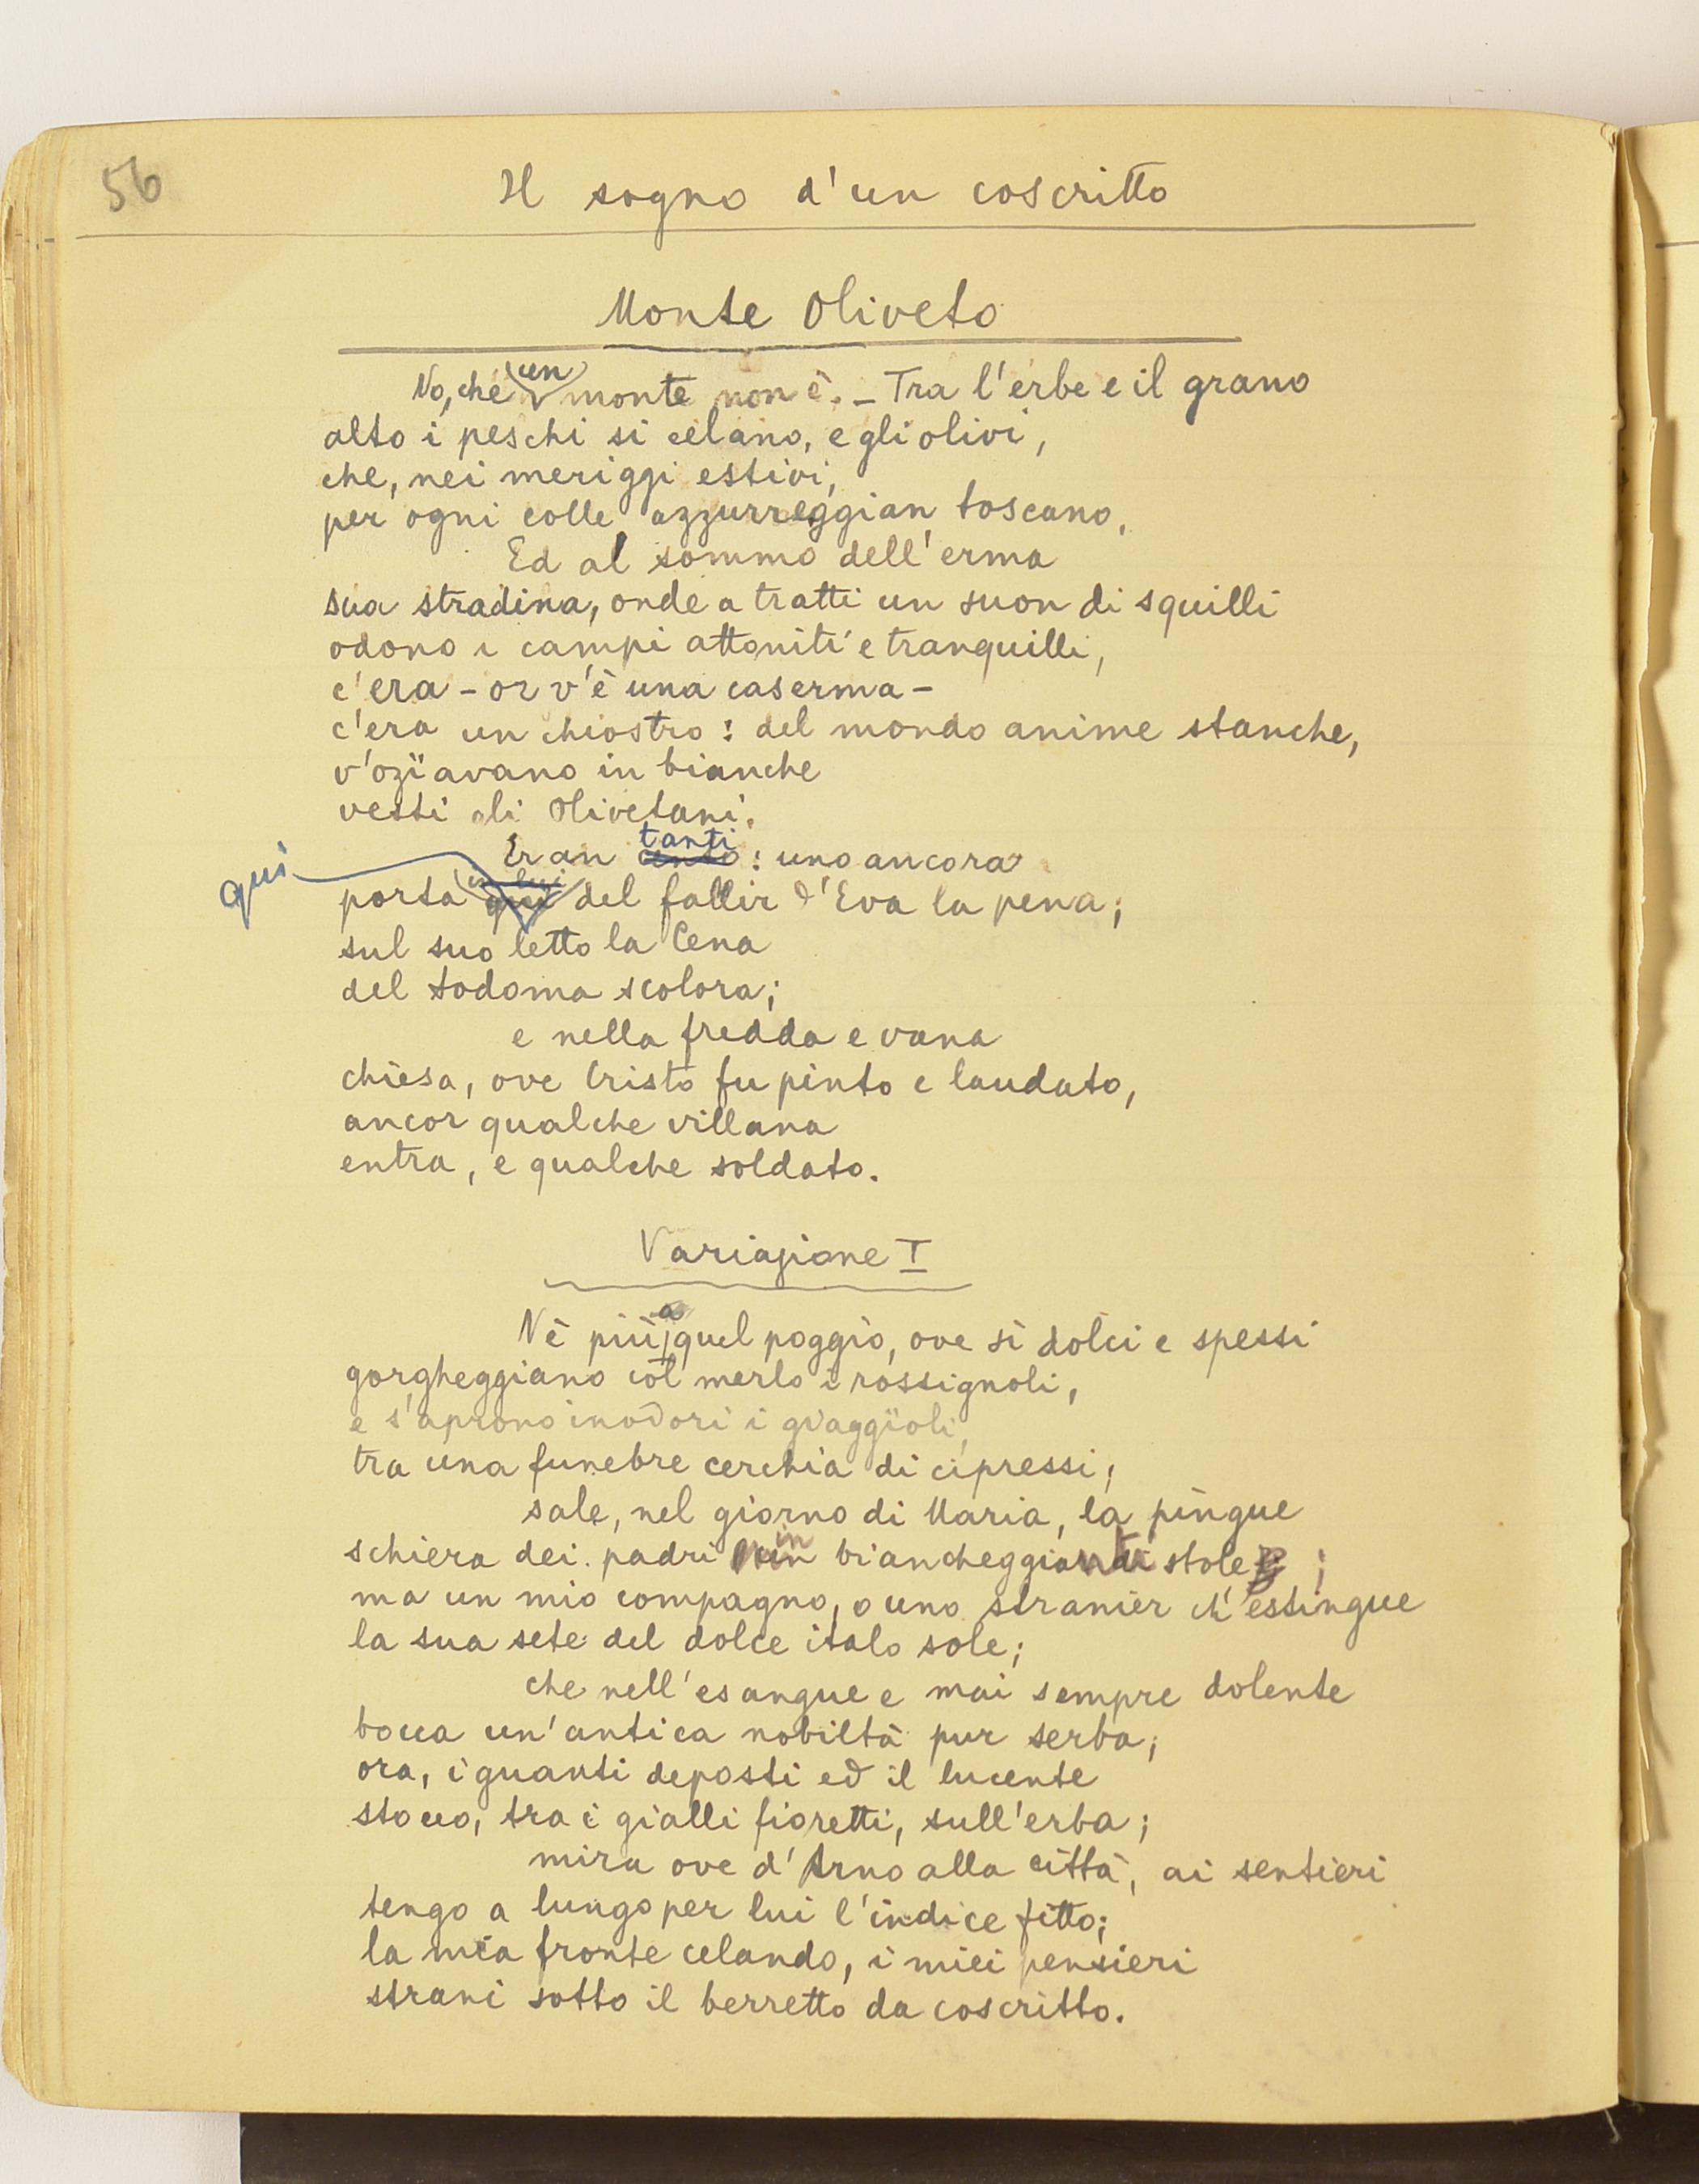 56
Il sogno d'un coscritto
Monte Oliveto
No, ché un monte non è. - Tra l'erbe e il grano
alto i peschi si celano, e gli olivi,
che, nei meriggi estivi,
per ogni colle azzurreggian toscano.
Ed al sommo dell'erma
sua stradina, onde a tratti un suon di squilli
odono i campi attoniti e tranquilli,
c'era - or v'è una caserma -
c'era un chiostro: del mondo anime stanche,
v'ozïavano in bianche
vesti gli Olivetani.
tanti
Eran cento: uno ancora
qui
in lui
porta qui del fallir d'Eva la pena;
sul suo letto la Cena
del Sodoma scolora;
e nella fredda e vana
chiesa, ove Cristo fu pinto e laudato,
ancor qualche villana
entra, e qualche soldato.
Variazione I
Nè più a quel poggio, ove sì dolci e spessi
gorgheggiano col merlo i rossignoli,
e s'aprono inodori i giaggïoli,
tra una funebre cerchia di cipressi,
sale, nel giorno di Maria, la pingue
schiera dei padri in biancheggianti stole;
ma un mio compagno, o uno stranier ch'estingue
la sua sete del dolce italo sole;
che nell'esangue e mai sempre dolente
bocca un'antica nobiltà pur serba;
ora, i guanti deposti ed il lucente
stocco, tra i gialli fioretti, sull'erba;
mira ove d'Arno alla città, ai sentieri
tengo a lungo per lui l'indice fitto;
la mia fronte celando, i miei pensieri
strani sotto il berretto da coscritto.